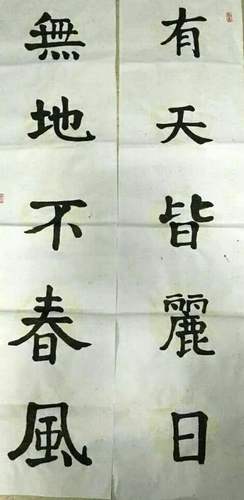 有天皆麗日
無地不春風